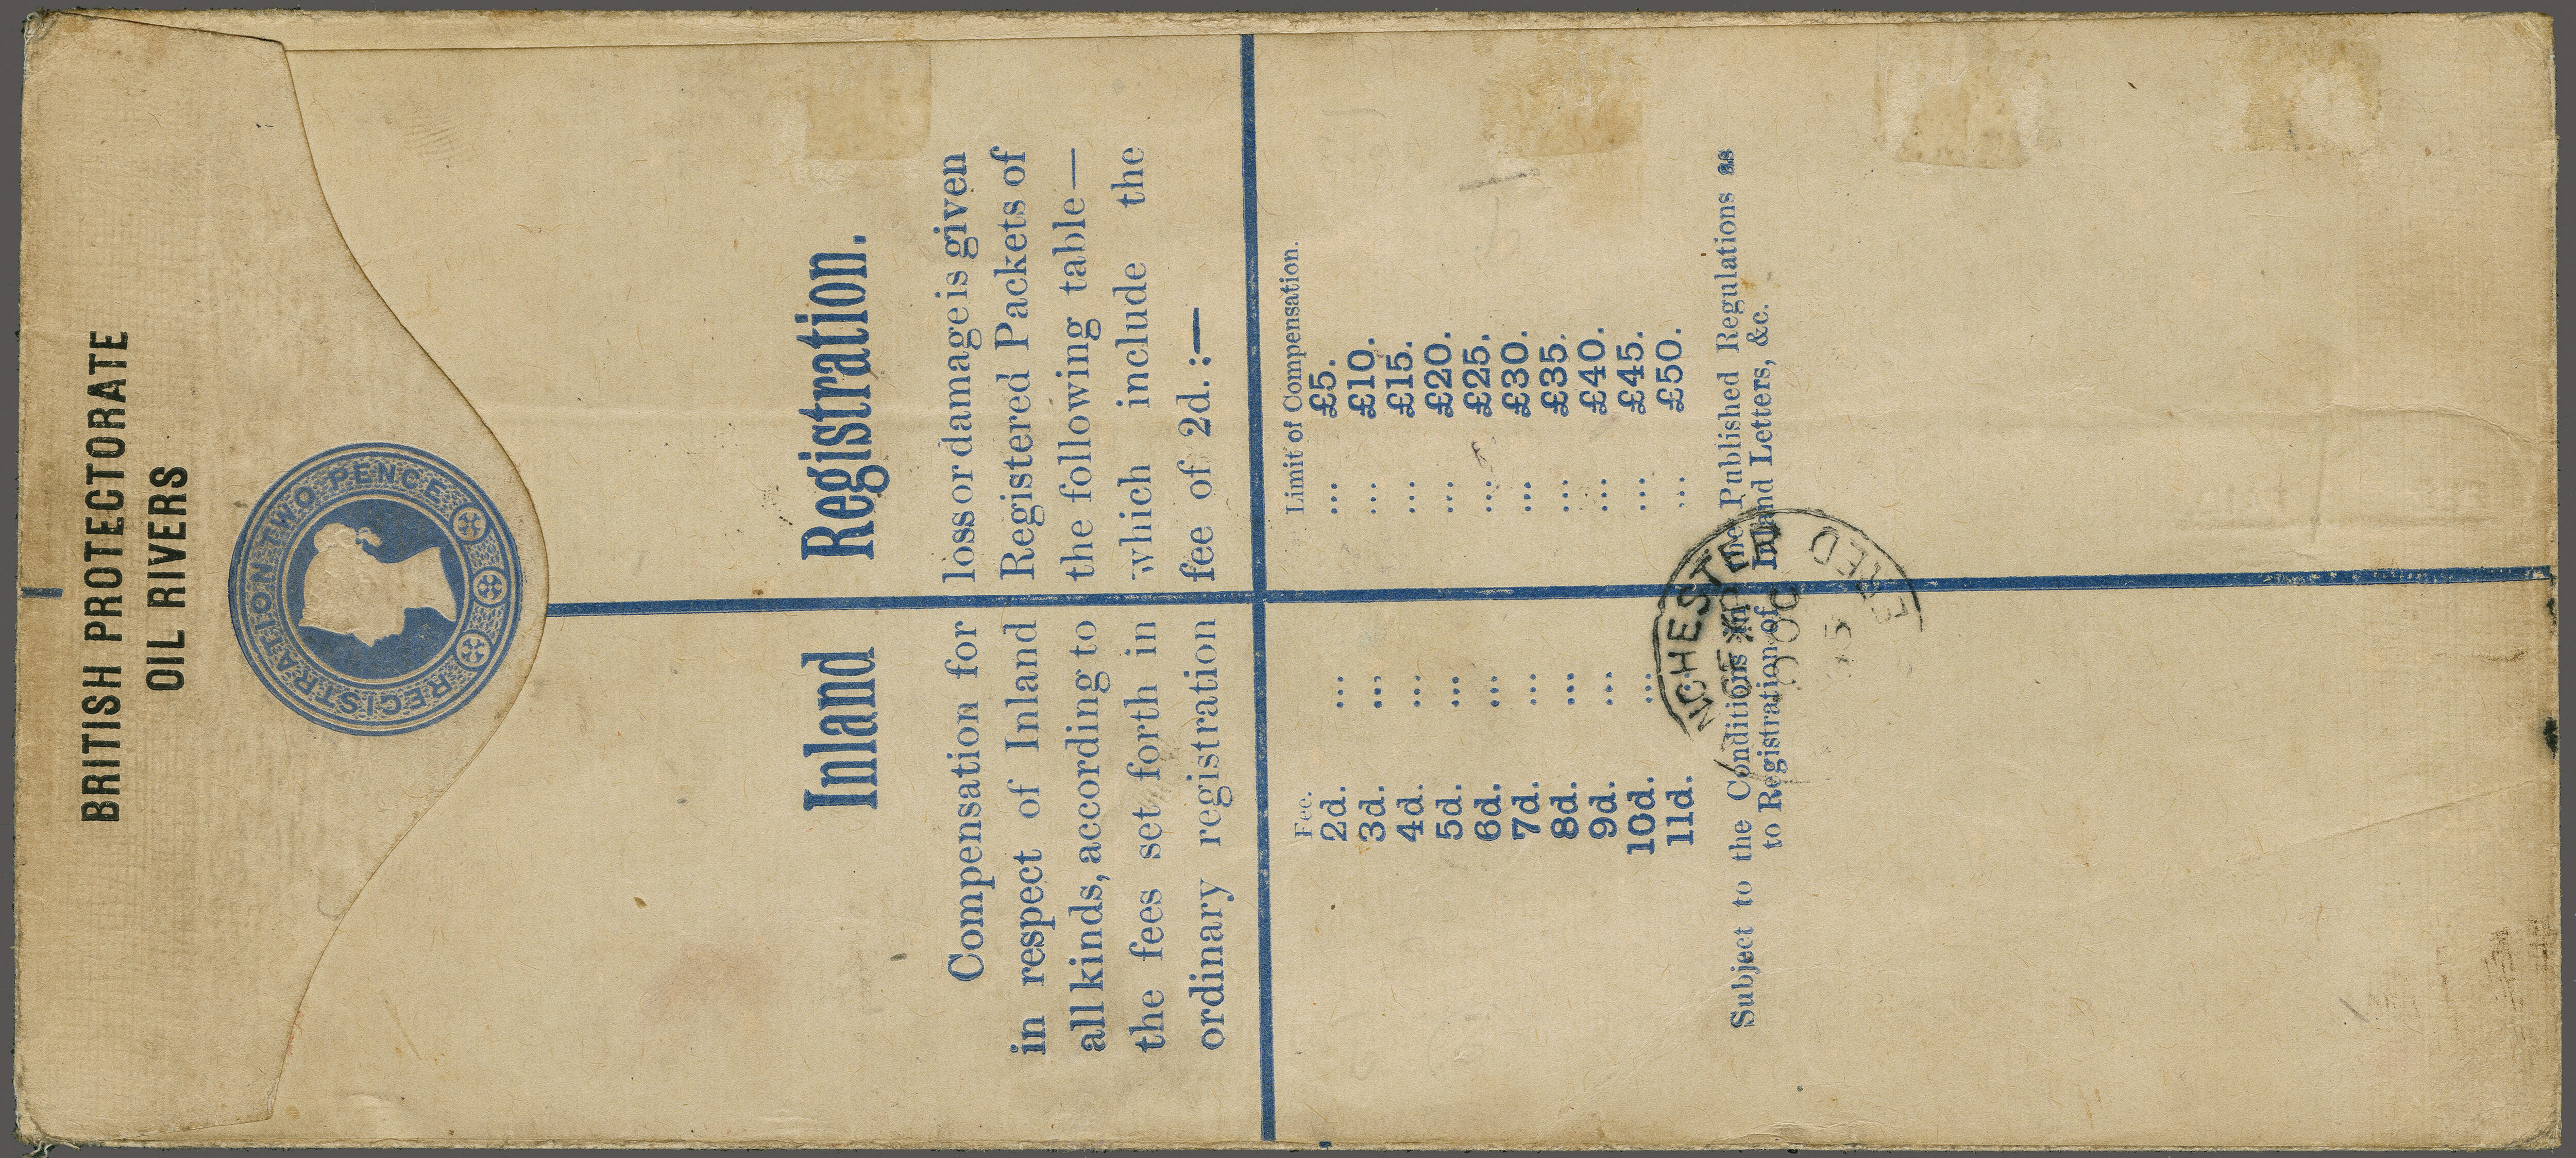 BRITISH PROTECTORATE
OIL RIVERS
REGISTRATION TWO PENCE
Inland Registration.
Compensation for loss or damage is given
in respect of Inland Registered Packets of
all kinds, according to the following table—
the fees set forth in which include the
ordinary registration fee of 2d. :—
Fee. Limit of Compensation.
2d. ... ... £5.
3d. ... ... £10.
4d. ... ... £15.
5d. ... ... £20.
6d. ... ... £25.
7d. ... ... £30.
8d. ... ... £35.
9d. ... ... £40.
10d. ... ... £45.
11d. ... £50.
Subject to the Conditions in the Published Regulations as
to Registration of Inland Letters, &c.